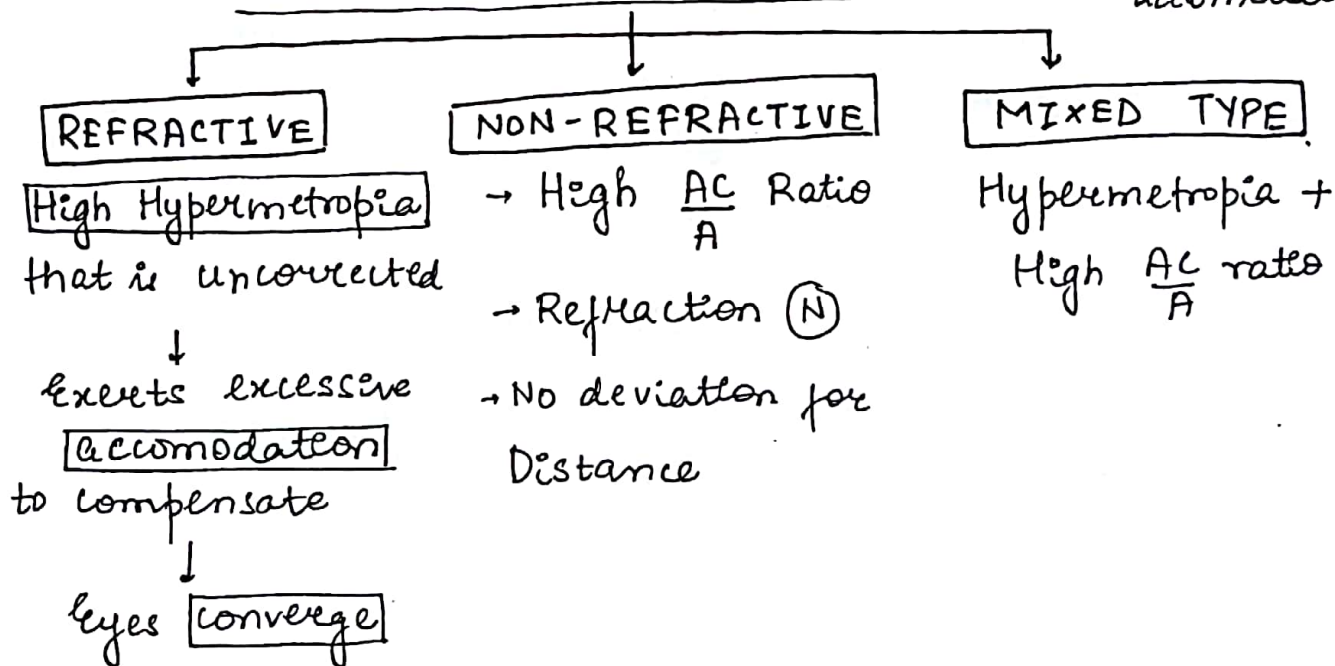 REFRACTIVE
High Hypermetropia
that is uncorrected
↓
Exerts excessive
accomodation
to compensate
↓
Eyes converge
NON-REFRACTIVE
→ High AC/A Ratio
→ Refraction Ⓝ
→ No deviation for
Distance
MIXED TYPE
Hypermetropia +
High AC/A ratio